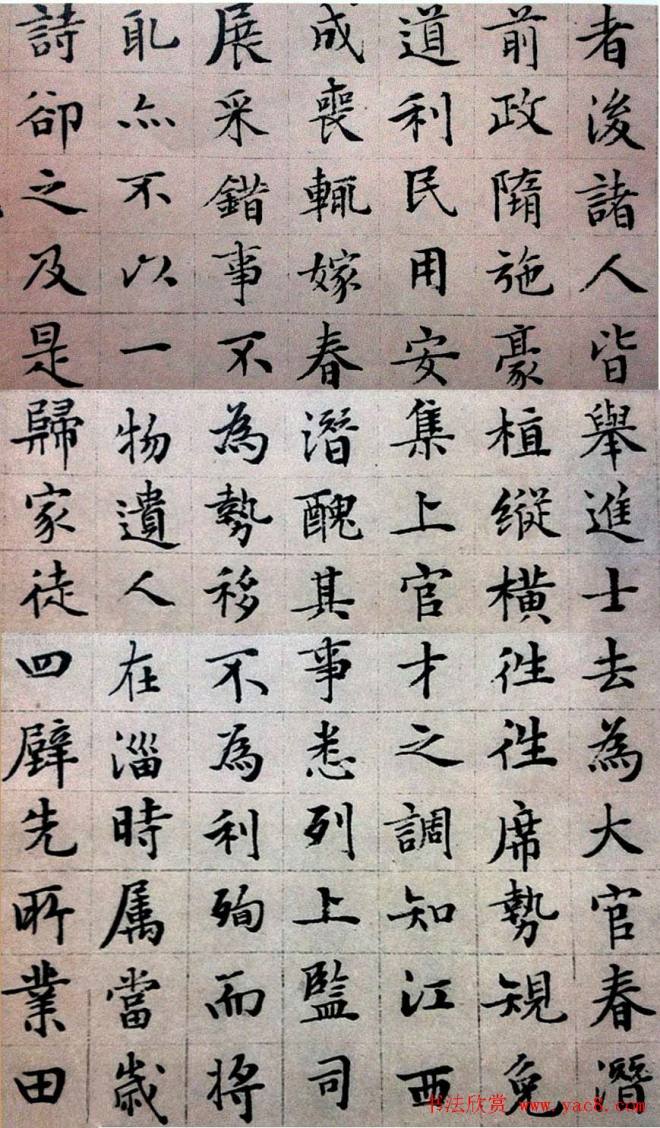 者後諸人皆舉進士去為大官春潛
前政隋施豪植縱橫往往席勢規免
道利民用安集上官才之調知江西
成喪輒嫁春潛醜其事悉列上監司
展采錯事不為勢移不為利殉而將
耴亦不以一物遺人在淄時属當歲
詩卻之及是歸家徒四壁先所業田
书法欣赏 www.yac8.com